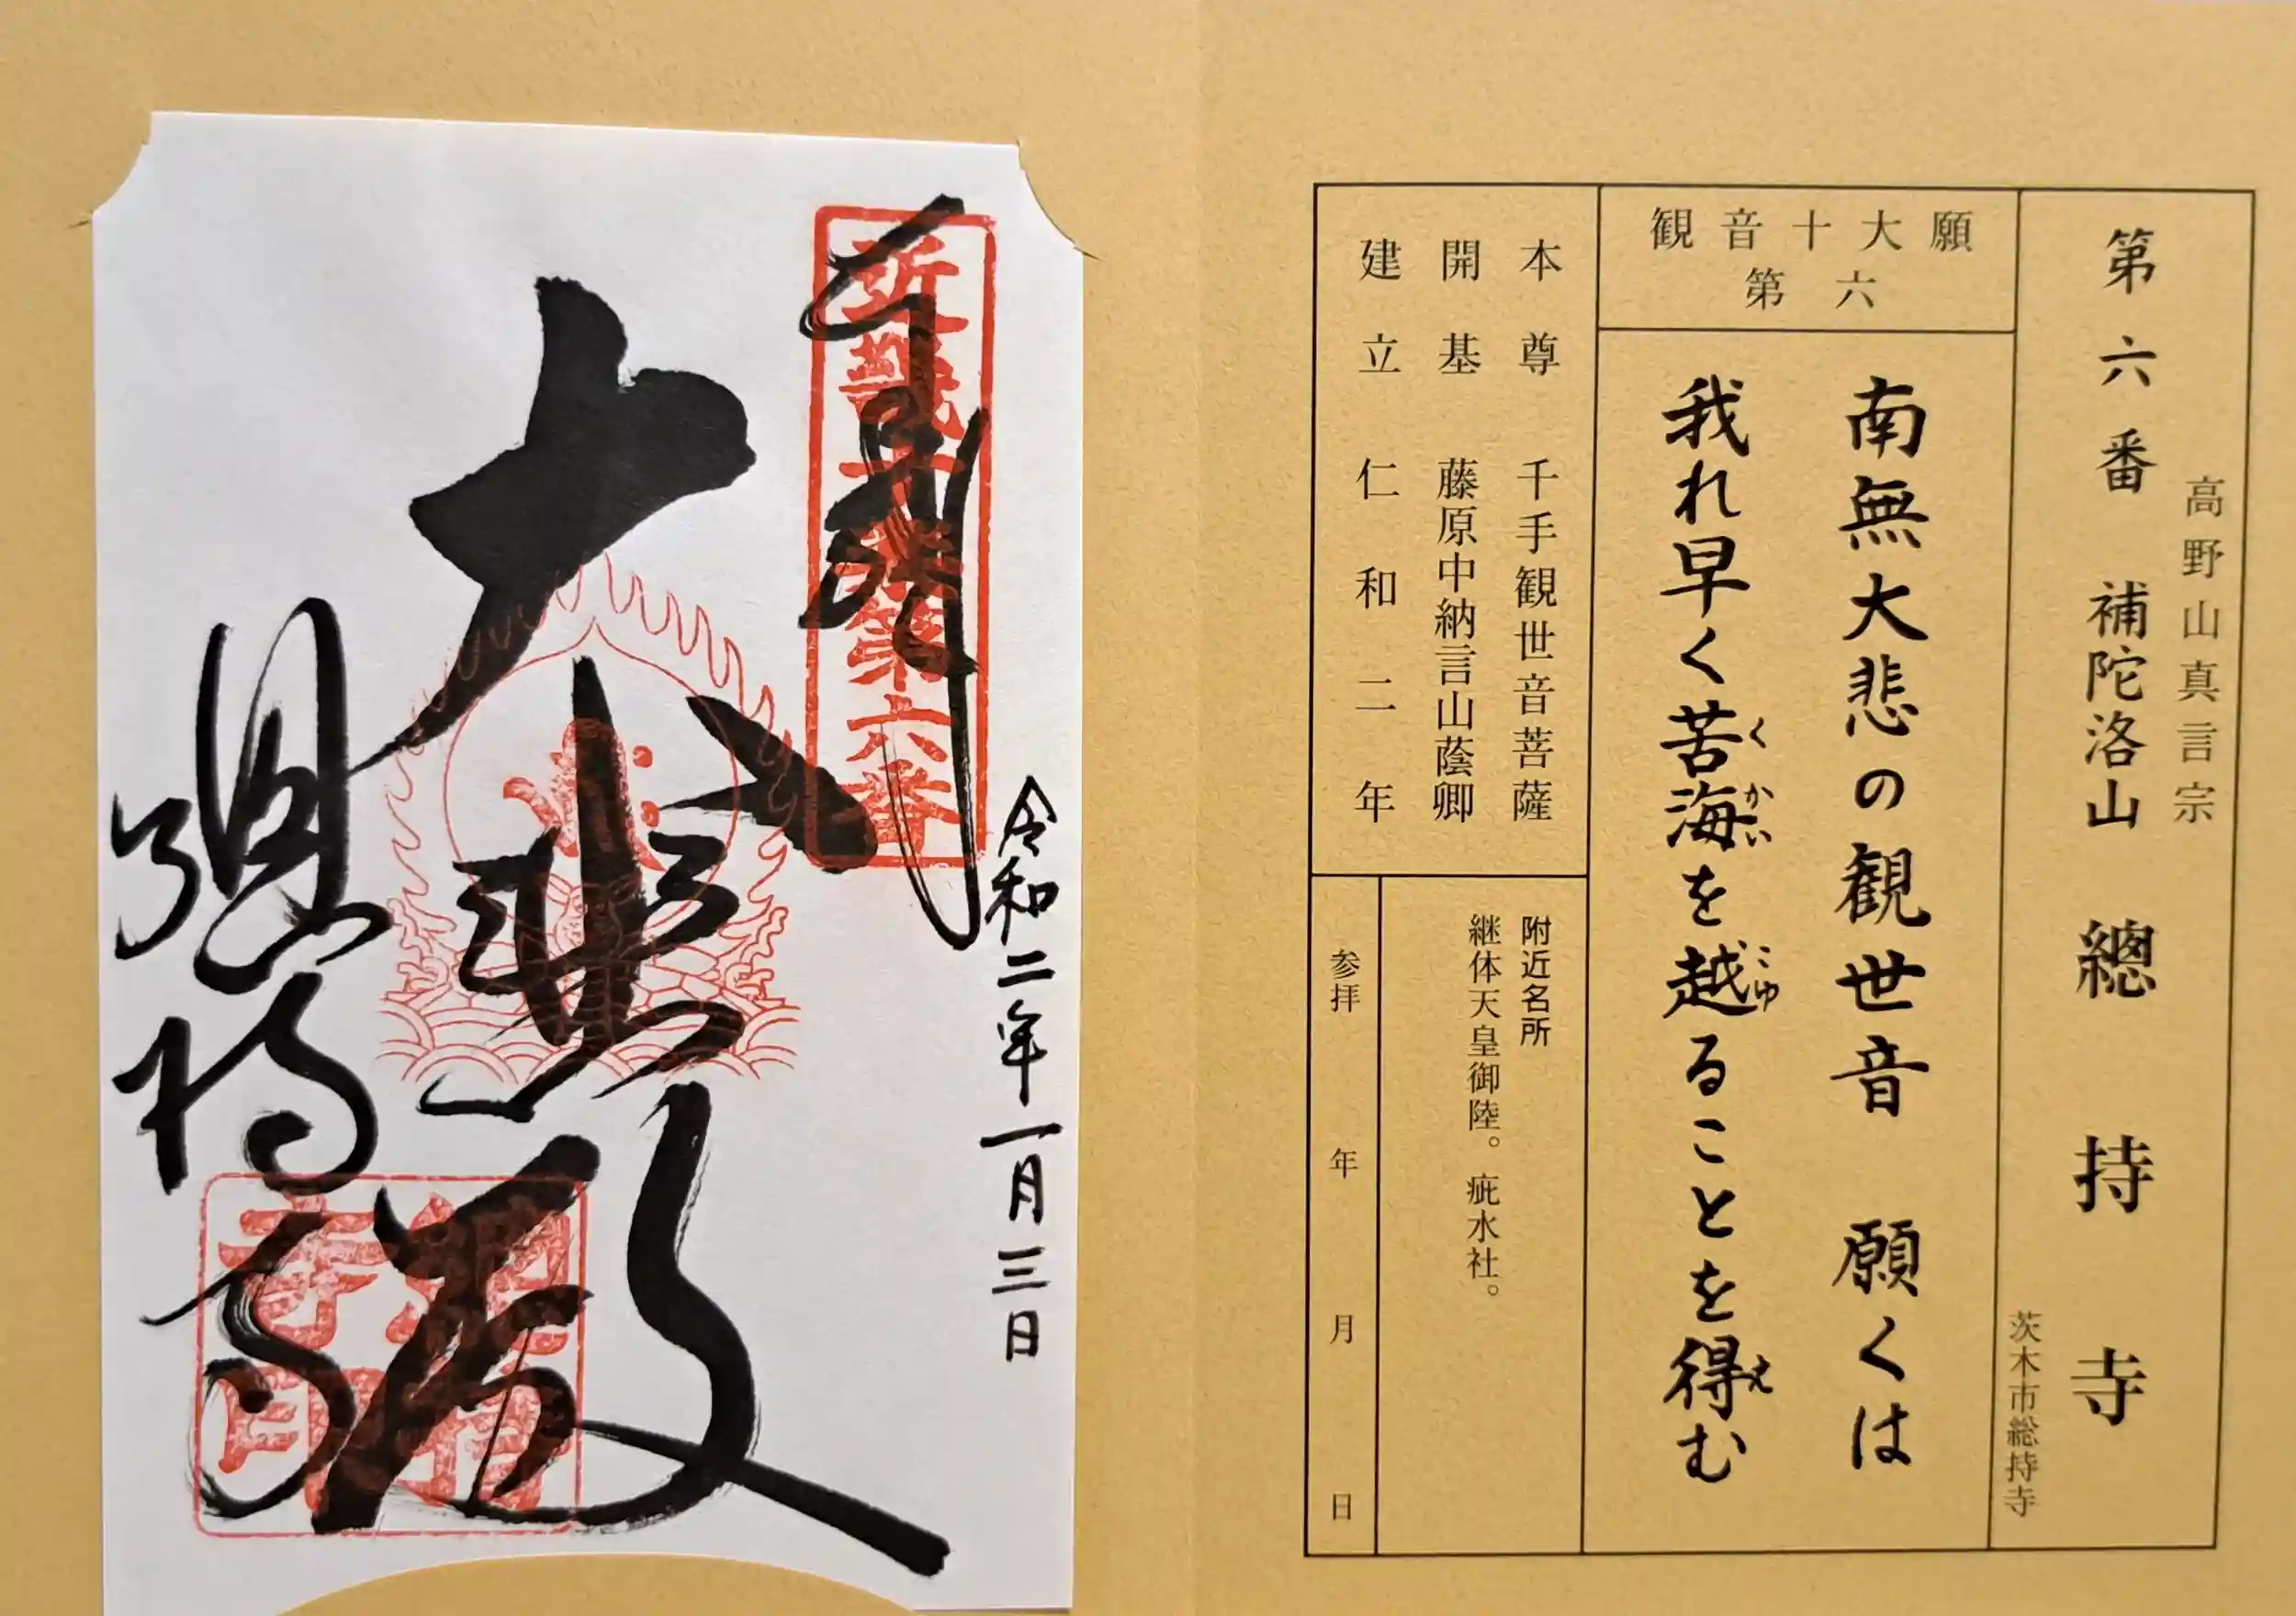 高野山真言宗
第六番 補陀洛山 總持寺
茨木市総持寺
観音十大願
第六
南無大悲の観世音 願くは
我れ早く苦海を越ることを得む
く かい こゆ え
本尊 千手観世音菩薩
開基 藤原中納言山蔭卿
建立 仁和二年
附近名所
継体天皇御陸。疵水社。
参拝 年 月 日
奉拝
近畿十楽第六番
令和二年一月三日
大悲殿
總持寺
總持寺印